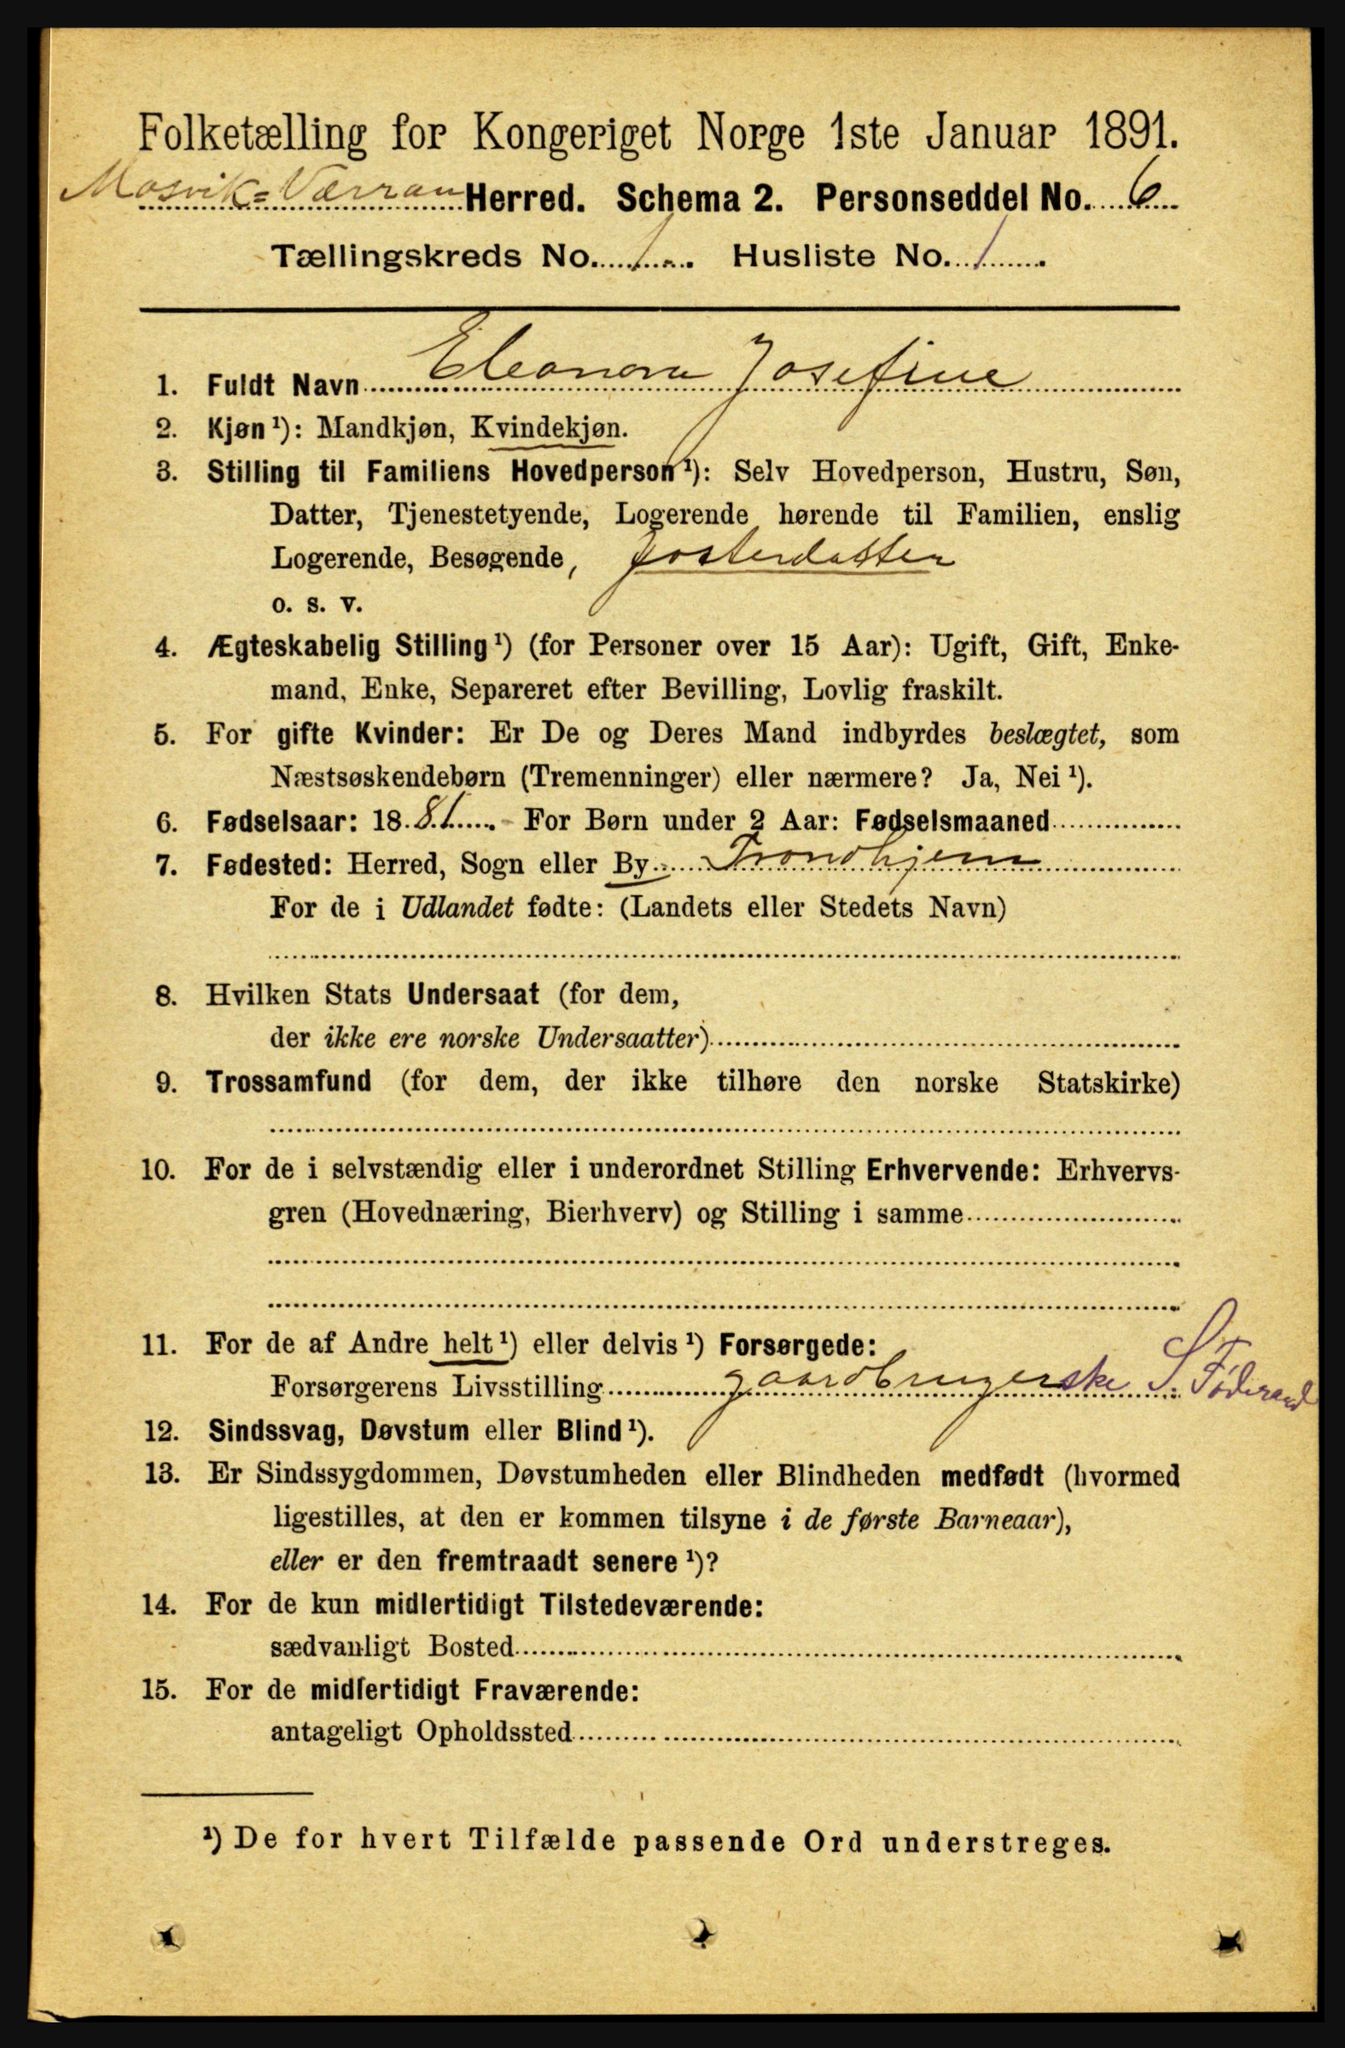 Folketælling for Kongeriget Norge 1ste Januar 1891.
Mosvik=Værran Herred. Schema 2. Personseddel No. 6
Tællingskreds No. 1. Husliste No. 1.
1. Fuldt Navn Eleonora Josefine
2. Kjøn ¹): Mandkjøn, Kvindekjøn.
3. Stilling til Familiens Hovedperson ¹): Selv Hovedperson, Hustru, Søn,
Datter, Tjenestetyende, Logerende hørende til Familien, enslig
Logerende, Besøgende, fosterdatter
o. s. v.
4. Ægteskabelig Stilling ¹) (for Personer over 15 Aar): Ugift, Gift, Enke-
mand, Enke, Separeret efter Bevilling, Lovlig fraskilt.
5. For gifte Kvinder: Er De og Deres Mand indbyrdes beslægtet, som
Næstsøskendebørn (Tremenninger) eller nærmere? Ja, Nei ¹).
6. Fødselsaar: 1881. For Børn under 2 Aar: Fødselsmaaned
7. Fødested: Herred, Sogn eller By Trondhjem
For de i Udlandet fødte: (Landets eller Stedets Navn)
8. Hvilken Stats Undersaat (for dem,
der ikke ere norske Undersaatter)
9. Trossamfund (for dem, der ikke tilhøre den norske Statskirke)
10. For de i selvstændig eller i underordnet Stilling Erhvervende: Erhvervs-
gren (Hovednæring, Bierhverv) og Stilling i samme
11. For de af Andre helt ¹) eller delvis ¹) Forsørgede:
Forsørgerens Livsstilling gaardbrugerske S. Føderaad
12. Sindssvag, Døvstum eller Blind ¹).
13. Er Sindssygdommen, Døvstumheden eller Blindheden medfødt (hvormed
ligestilles, at den er kommen tilsyne i de første Barneaar),
eller er den fremtraadt senere ¹)?
14. For de kun midlertidigt Tilstedeværende:
sædvanligt Bosted
15. For de midlertidigt Fraværende:
antageligt Opholdssted
¹) De for hvert Tilfælde passende Ord understreges.